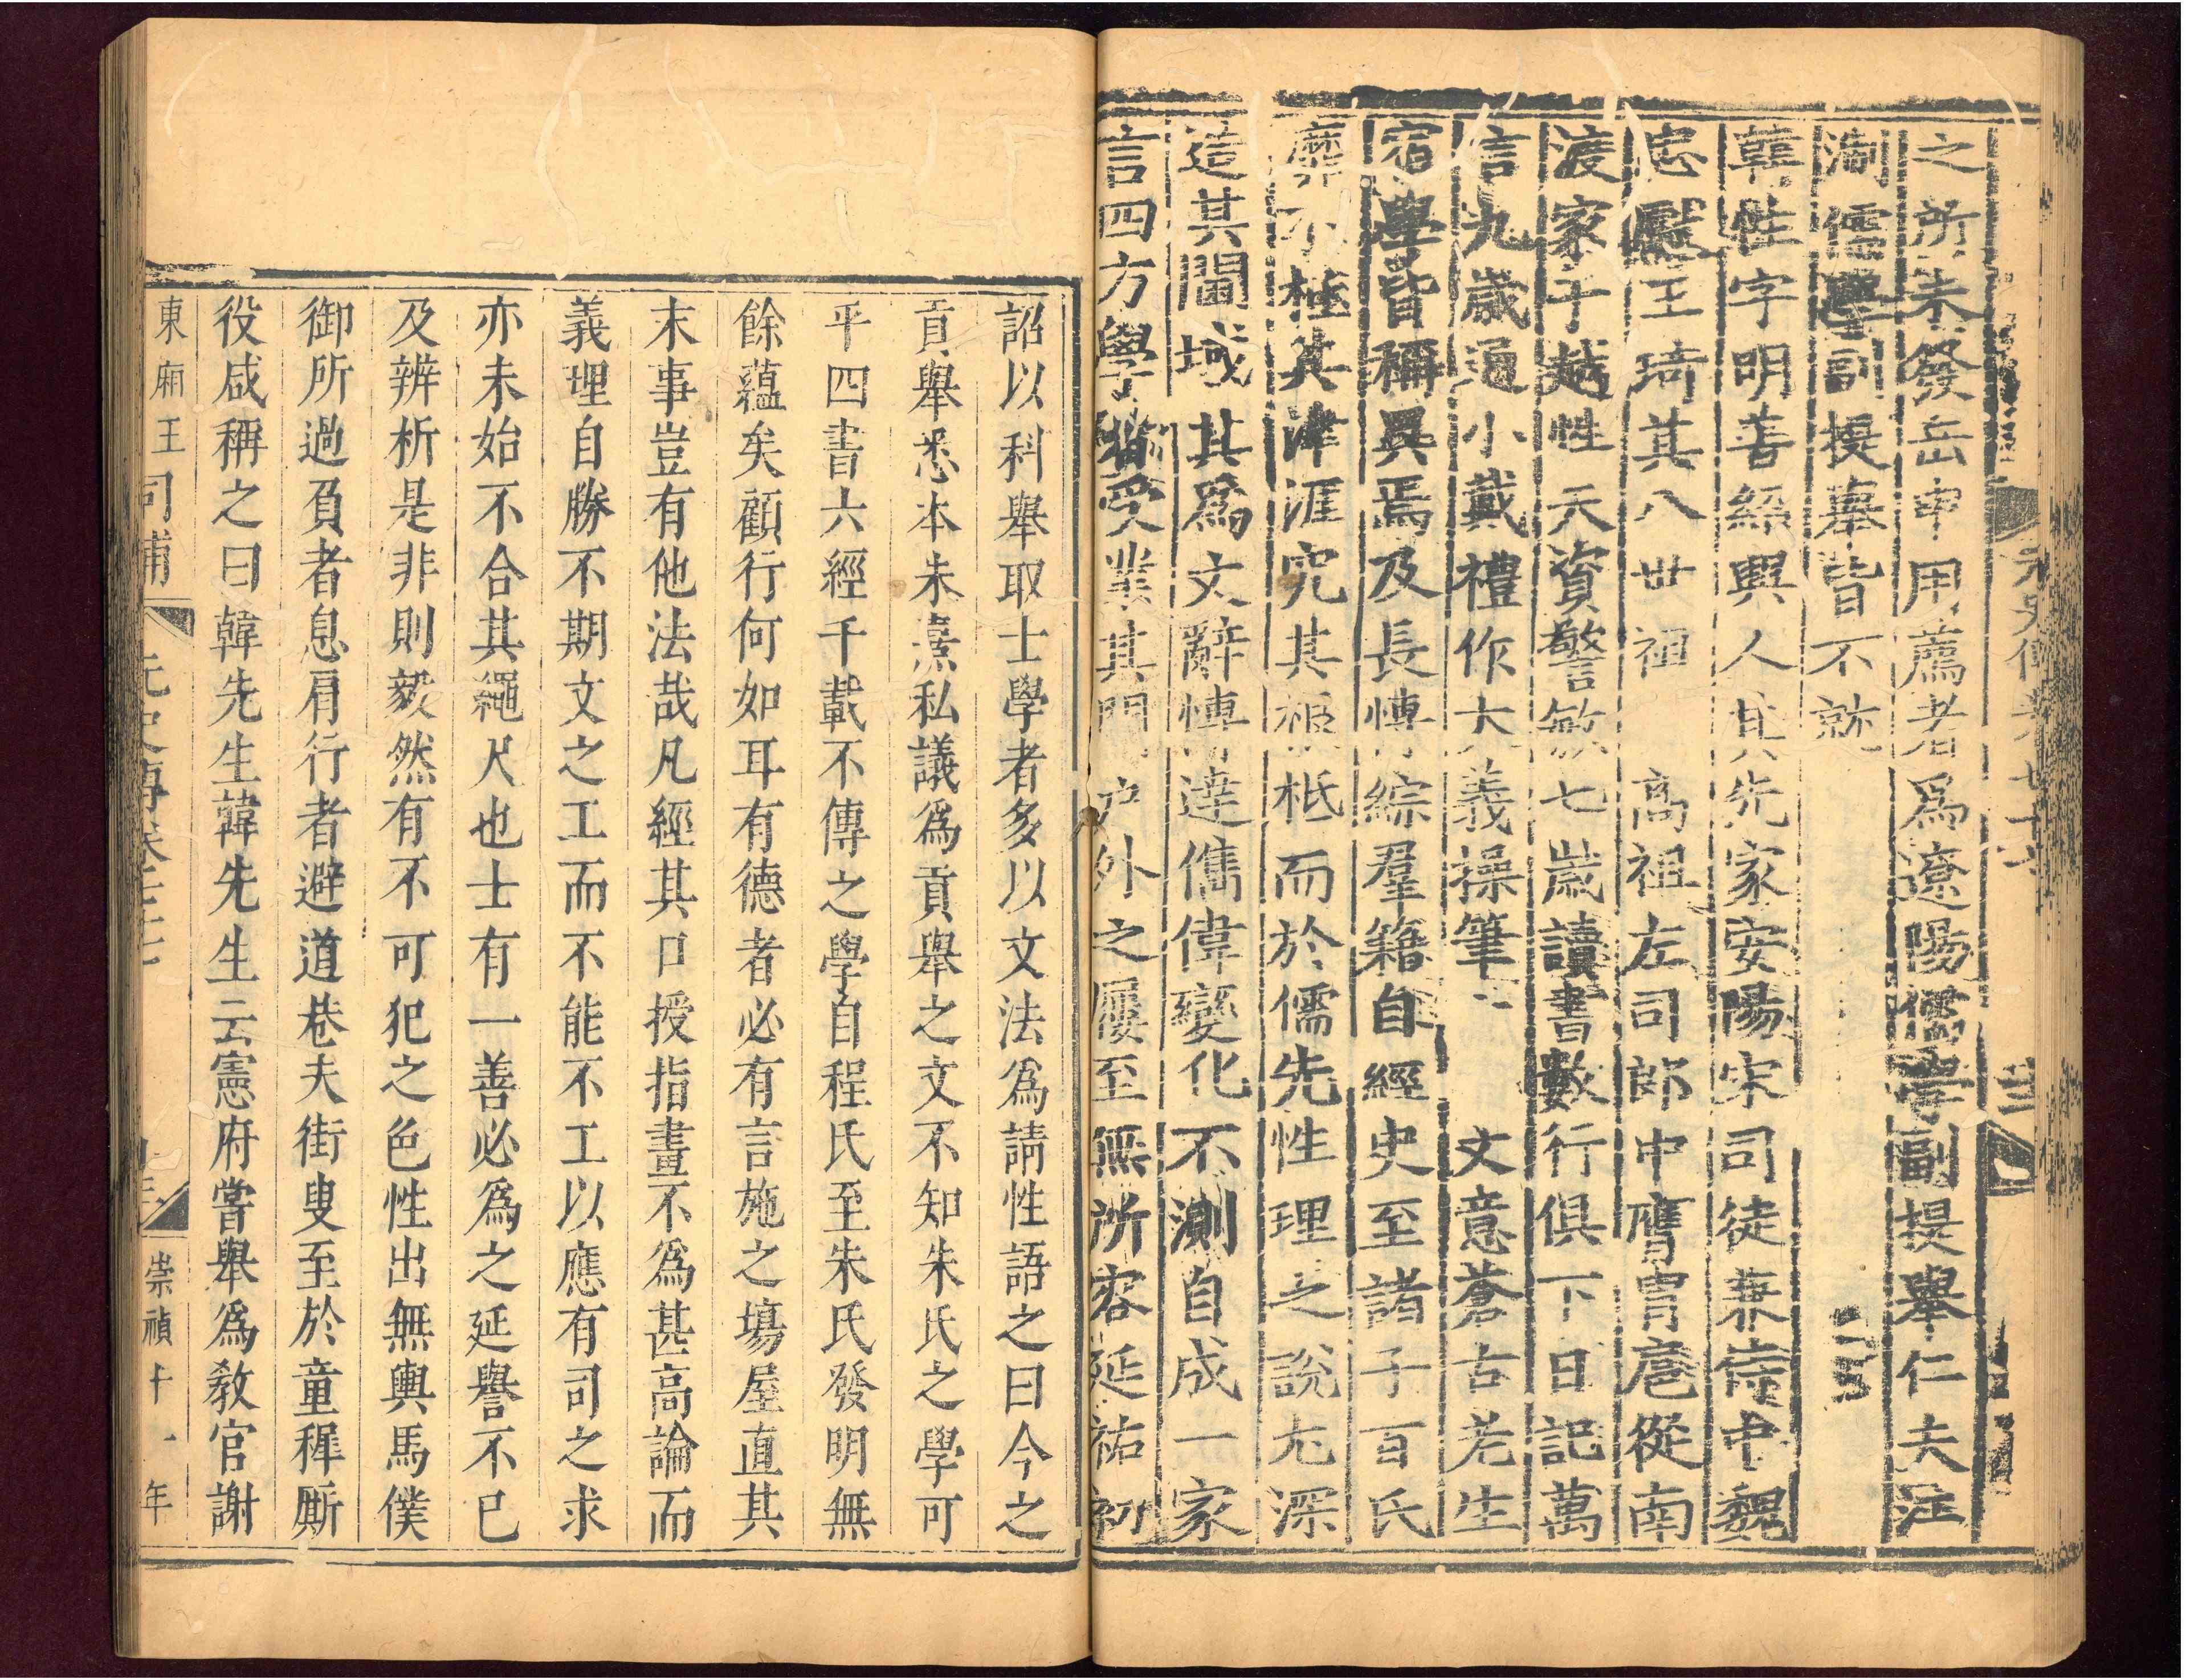 之所未發岳申用薦者爲遼陽儒學副提舉仁夫江
淛儒學副提舉皆不就
韓性字明善紹興人其先家安陽宋司徒兼侍中魏
忠獻王琦其八世祖高祖左司郎中膺胄扈從南
渡家于越性天資警敏七歲讀書數行俱下日記萬
言九歲通小戴禮作大義操筆文意蒼古老生
宿學皆稱異焉及長博綜羣籍自經史至諸子百氏
靡不極其津涯究其根柢而於儒先性理之說尤深
造其閫域其爲文辭博達儁偉變化不測自成一家
言四方學者受業其門戶外之屨至無所容延祐初
詔以科舉取士學者多以文法爲請性語之曰今之
貢舉悉本朱熹私議爲貢舉之文不知朱氏之學可
乎四書六經千載不傳之學自程氏至朱氏發明無
餘蘊矣顧行何如耳有德者必有言施之塲屋直其
末事豈有他法哉凡經其口授指畫不爲甚高論而
義理自勝不期文之工而不能不工以應有司之求
亦未始不合其繩尺也士有一善必爲之延譽不已
及辨析是非則毅然有不可犯之色性出無輿馬僕
御所過負者息肩行者避道巷夫街叟至於童稺厮
役咸稱之曰韓先生韓先生云憲府嘗舉爲教官謝
東廂王司浦
元史傳卷
崇禎十一年